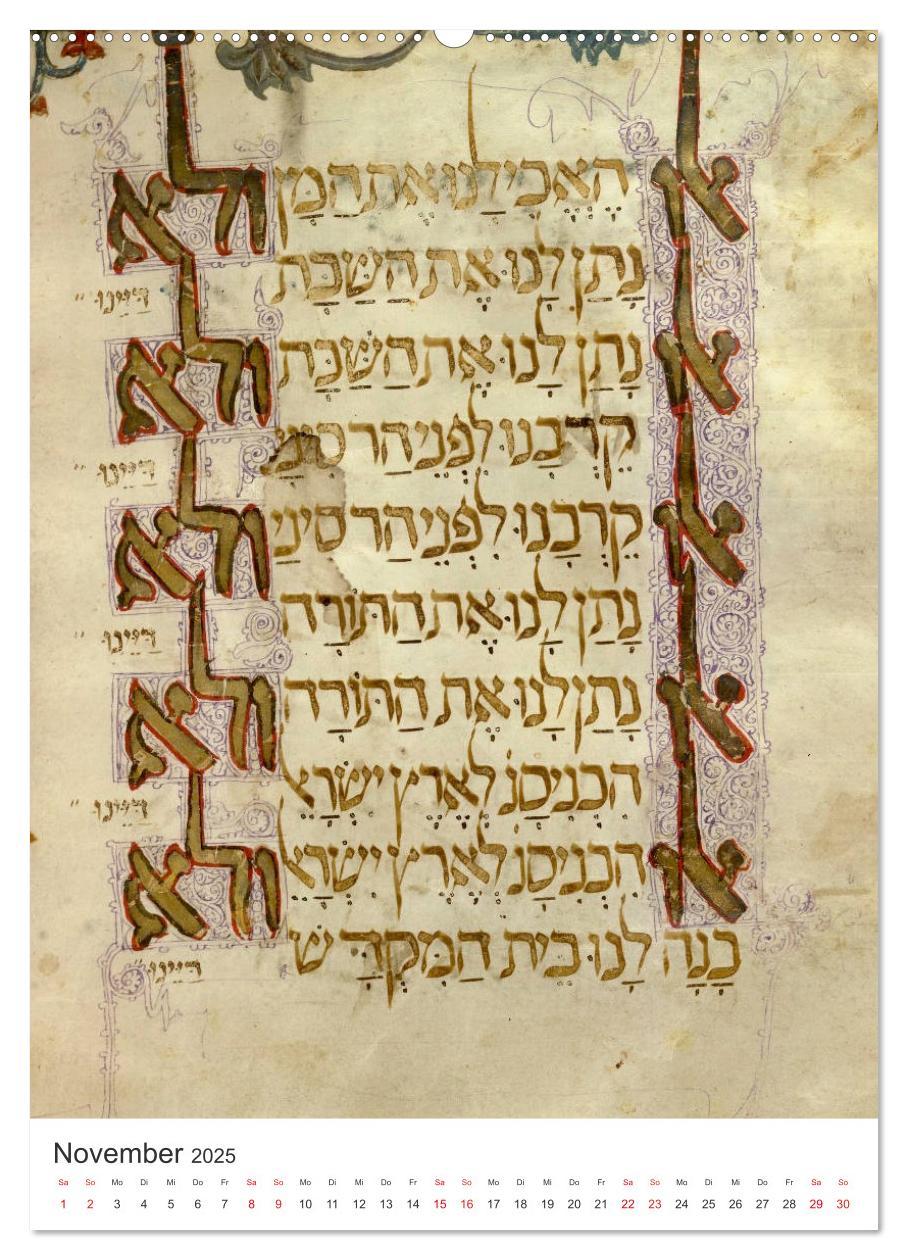 אלו הֶאֱכִילָנוּ אֶת הַמָּן ולא
נָתַן לָנוּ אֶת הַשַּׁבָּת דַּיֵּינוּ
אלו נָתַן לָנוּ אֶת הַשַּׁבָּת ולא
קֵרְבָנוּ לִפְנֵי הַר סִינַי דַּיֵּינוּ
אלו קֵרְבָנוּ לִפְנֵי הַר סִינַי ולא
נָתַן לָנוּ אֶת הַתּוֹרָה דַּיֵּינוּ
אלו נָתַן לָנוּ אֶת הַתּוֹרָה ולא
הִכְנִיסָנוּ לְאֶרֶץ יִשְׂרָא דַּיֵּינוּ
אלו הִכְנִיסָנוּ לְאֶרֶץ יִשְׂרָא ולא
בָּנָה לָנוּ בֵּית הַמִּקְדָּ שׁ דַּיֵּינוּ
November 2025
Sa So Mo Di Mi Do Fr Sa So Mo Di Mi Do Fr Sa So Mo Di Mi Do Fr Sa So Mo Di Mi Do Fr Sa So
1 2 3 4 5 6 7 8 9 10 11 12 13 14 15 16 17 18 19 20 21 22 23 24 25 26 27 28 29 30